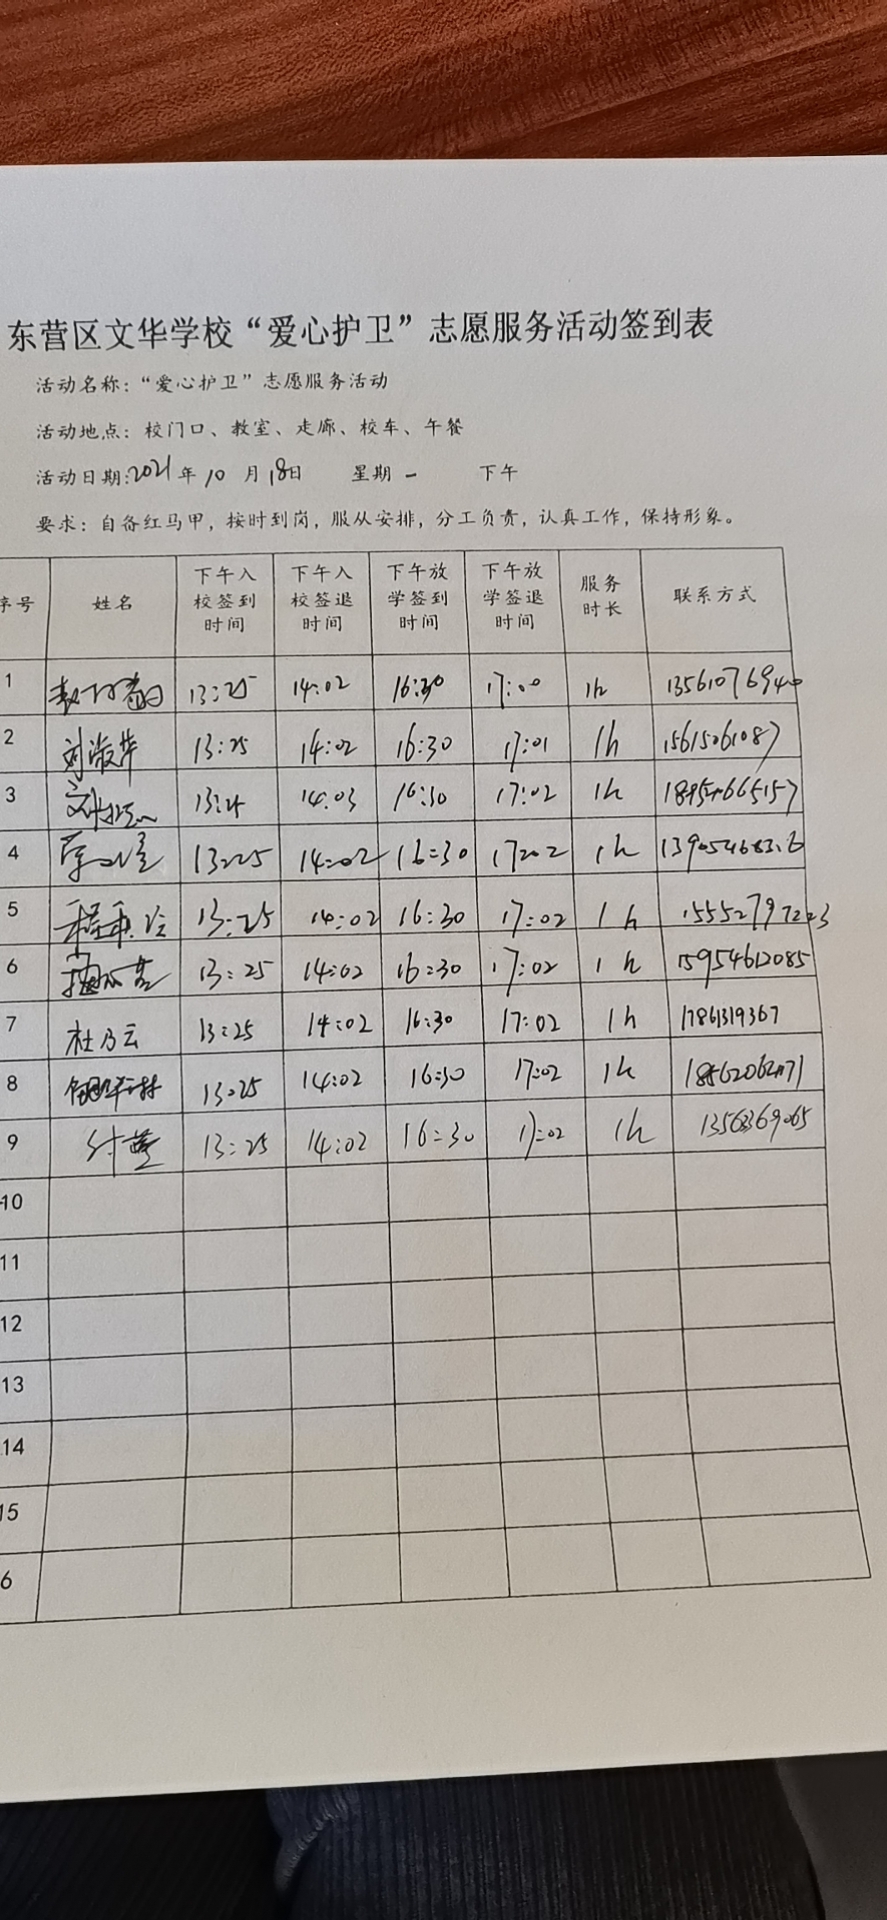 东营区文华学校“爱心护卫”志愿服务活动签到表
活动名称：“爱心护卫”志愿服务活动
活动地点：校门口、教室、走廊、校车、午餐
活动日期:2021年10月18日 星期一 下午
要求：自备红马甲，按时到岗，服从安排，分工负责，认真工作，保持形象。
序号 姓名 下午入校签到时间 下午入校签退时间 下午放学签到时间 下午放学签退时间 服务时长 联系方式
1 13:25 14:02 16:30 17:00 1h 13561076940
2 刘淑华 13:25 14:02 16:30 17:01 1h 15615061087
3 13:25 14:03 16:30 17:02 1h
4 13:25 14:02 16:30 17:02 1h
5 13:25 14:02 16:30 17:02 1h
6 13:25 14:02 16:30 17:02 1h 15954612085
7 杜乃云 13:25 14:02 16:30 17:02 1h
8 13:25 14:02 16:30 17:02 1h
9 13:25 14:02 16:30 17:02 1h
10
11
12
13
14
15
6